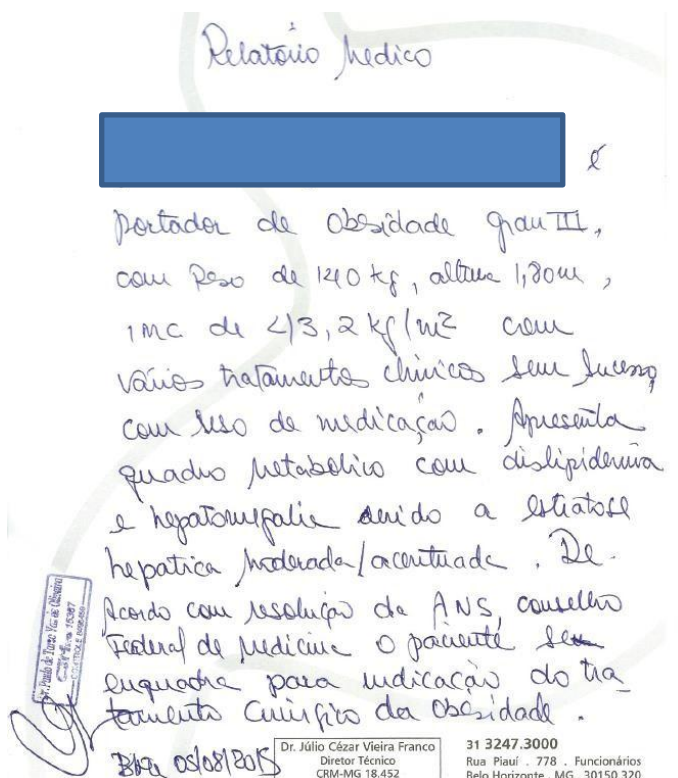 Relatório Medico
é
portador de obesidade grau III,
com Peso de 140 kg, altura 1,80m,
IMC de 43,2 kg/m² com
vários tratamentos clínicos sem sucesso,
com uso de medicação. Apresenta
quadro metabolico com dislipidemia
e hepatomegalia devido a estratose
hepatica moderada/acentuada. De
Acordo com resolução da ANS, conselho
Federal de Medicina o paciente se
enquadra para indicação do tra
tamento Cirurgico da obesidade.
05/08/2015
Dr. Paulo de Tarso
Dr. Júlio Cézar Vieira Franco
Diretor Técnico
CRM-MG 18.452
31 3247.3000
Rua Piauí . 778 . Funcionários
Belo Horizonte . MG . 30150 320